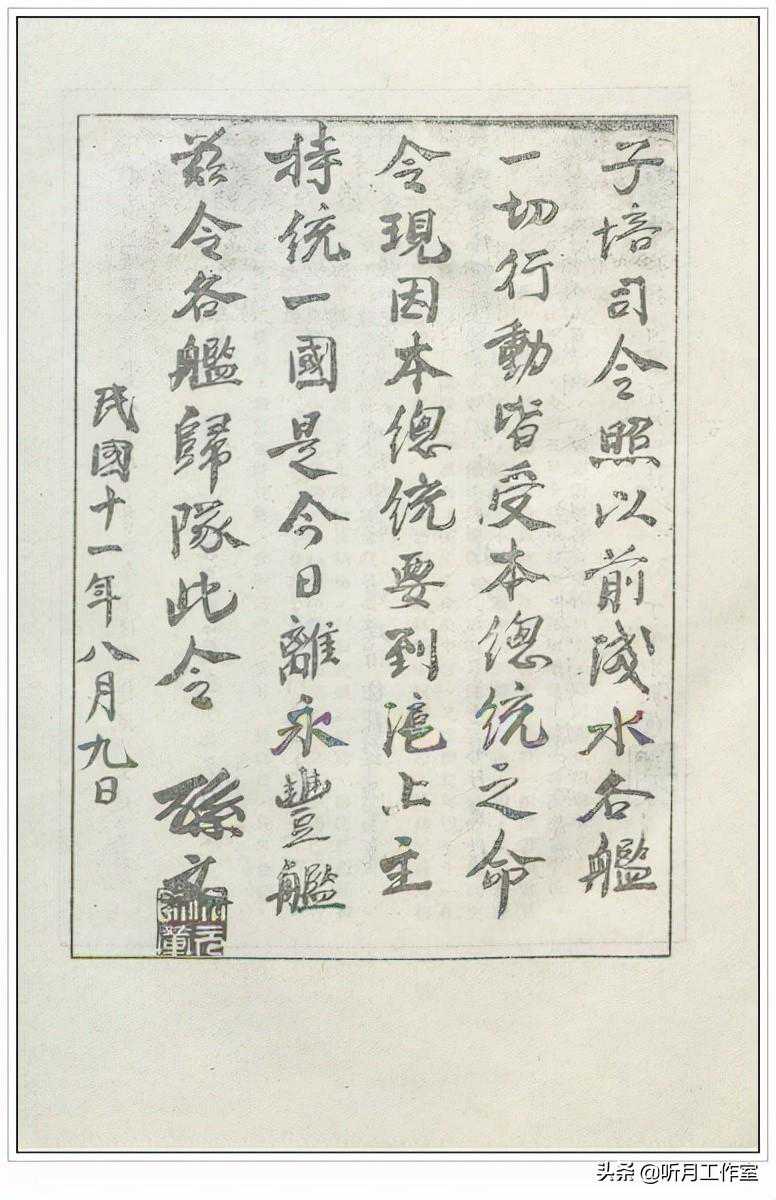 子培司令照以前淺水各艦
一切行動皆受本總統之命
令現因本總統要到滬上主
持統一國是今日離永豐艦
茲令各艦歸隊此令 孫文
民國十一年八月九日
头条 @听月工作室